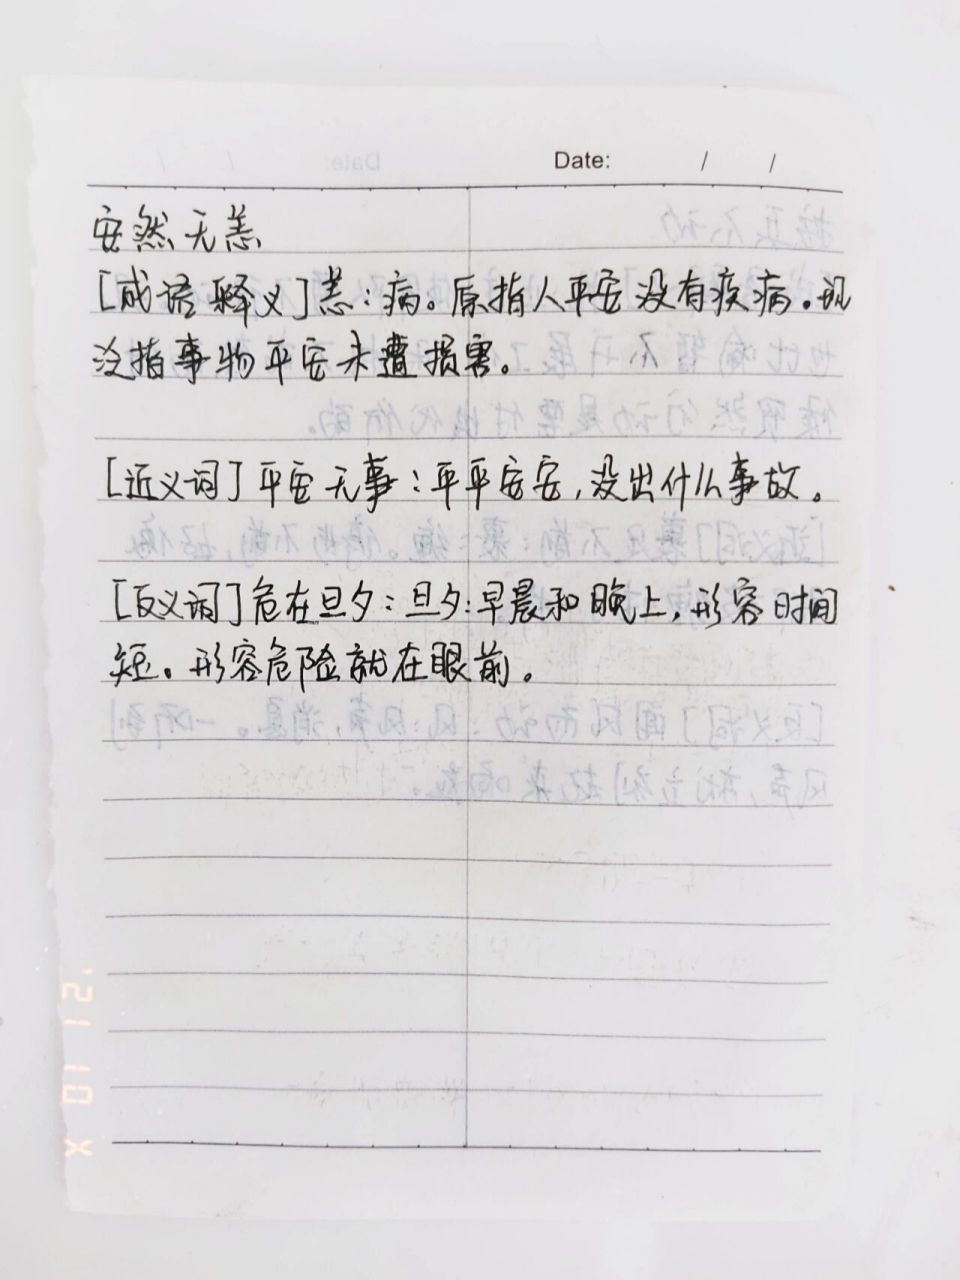 Date: / /
安然无恙
[成语释义]恙：病。原指人平安没有疾病。现
泛指事物平安未遭损害。
[近义词]平安无事：平平安安，没出什么事故。
[反义词]危在旦夕：旦夕：早晨和晚上，形容时间
短。形容危险就在眼前。